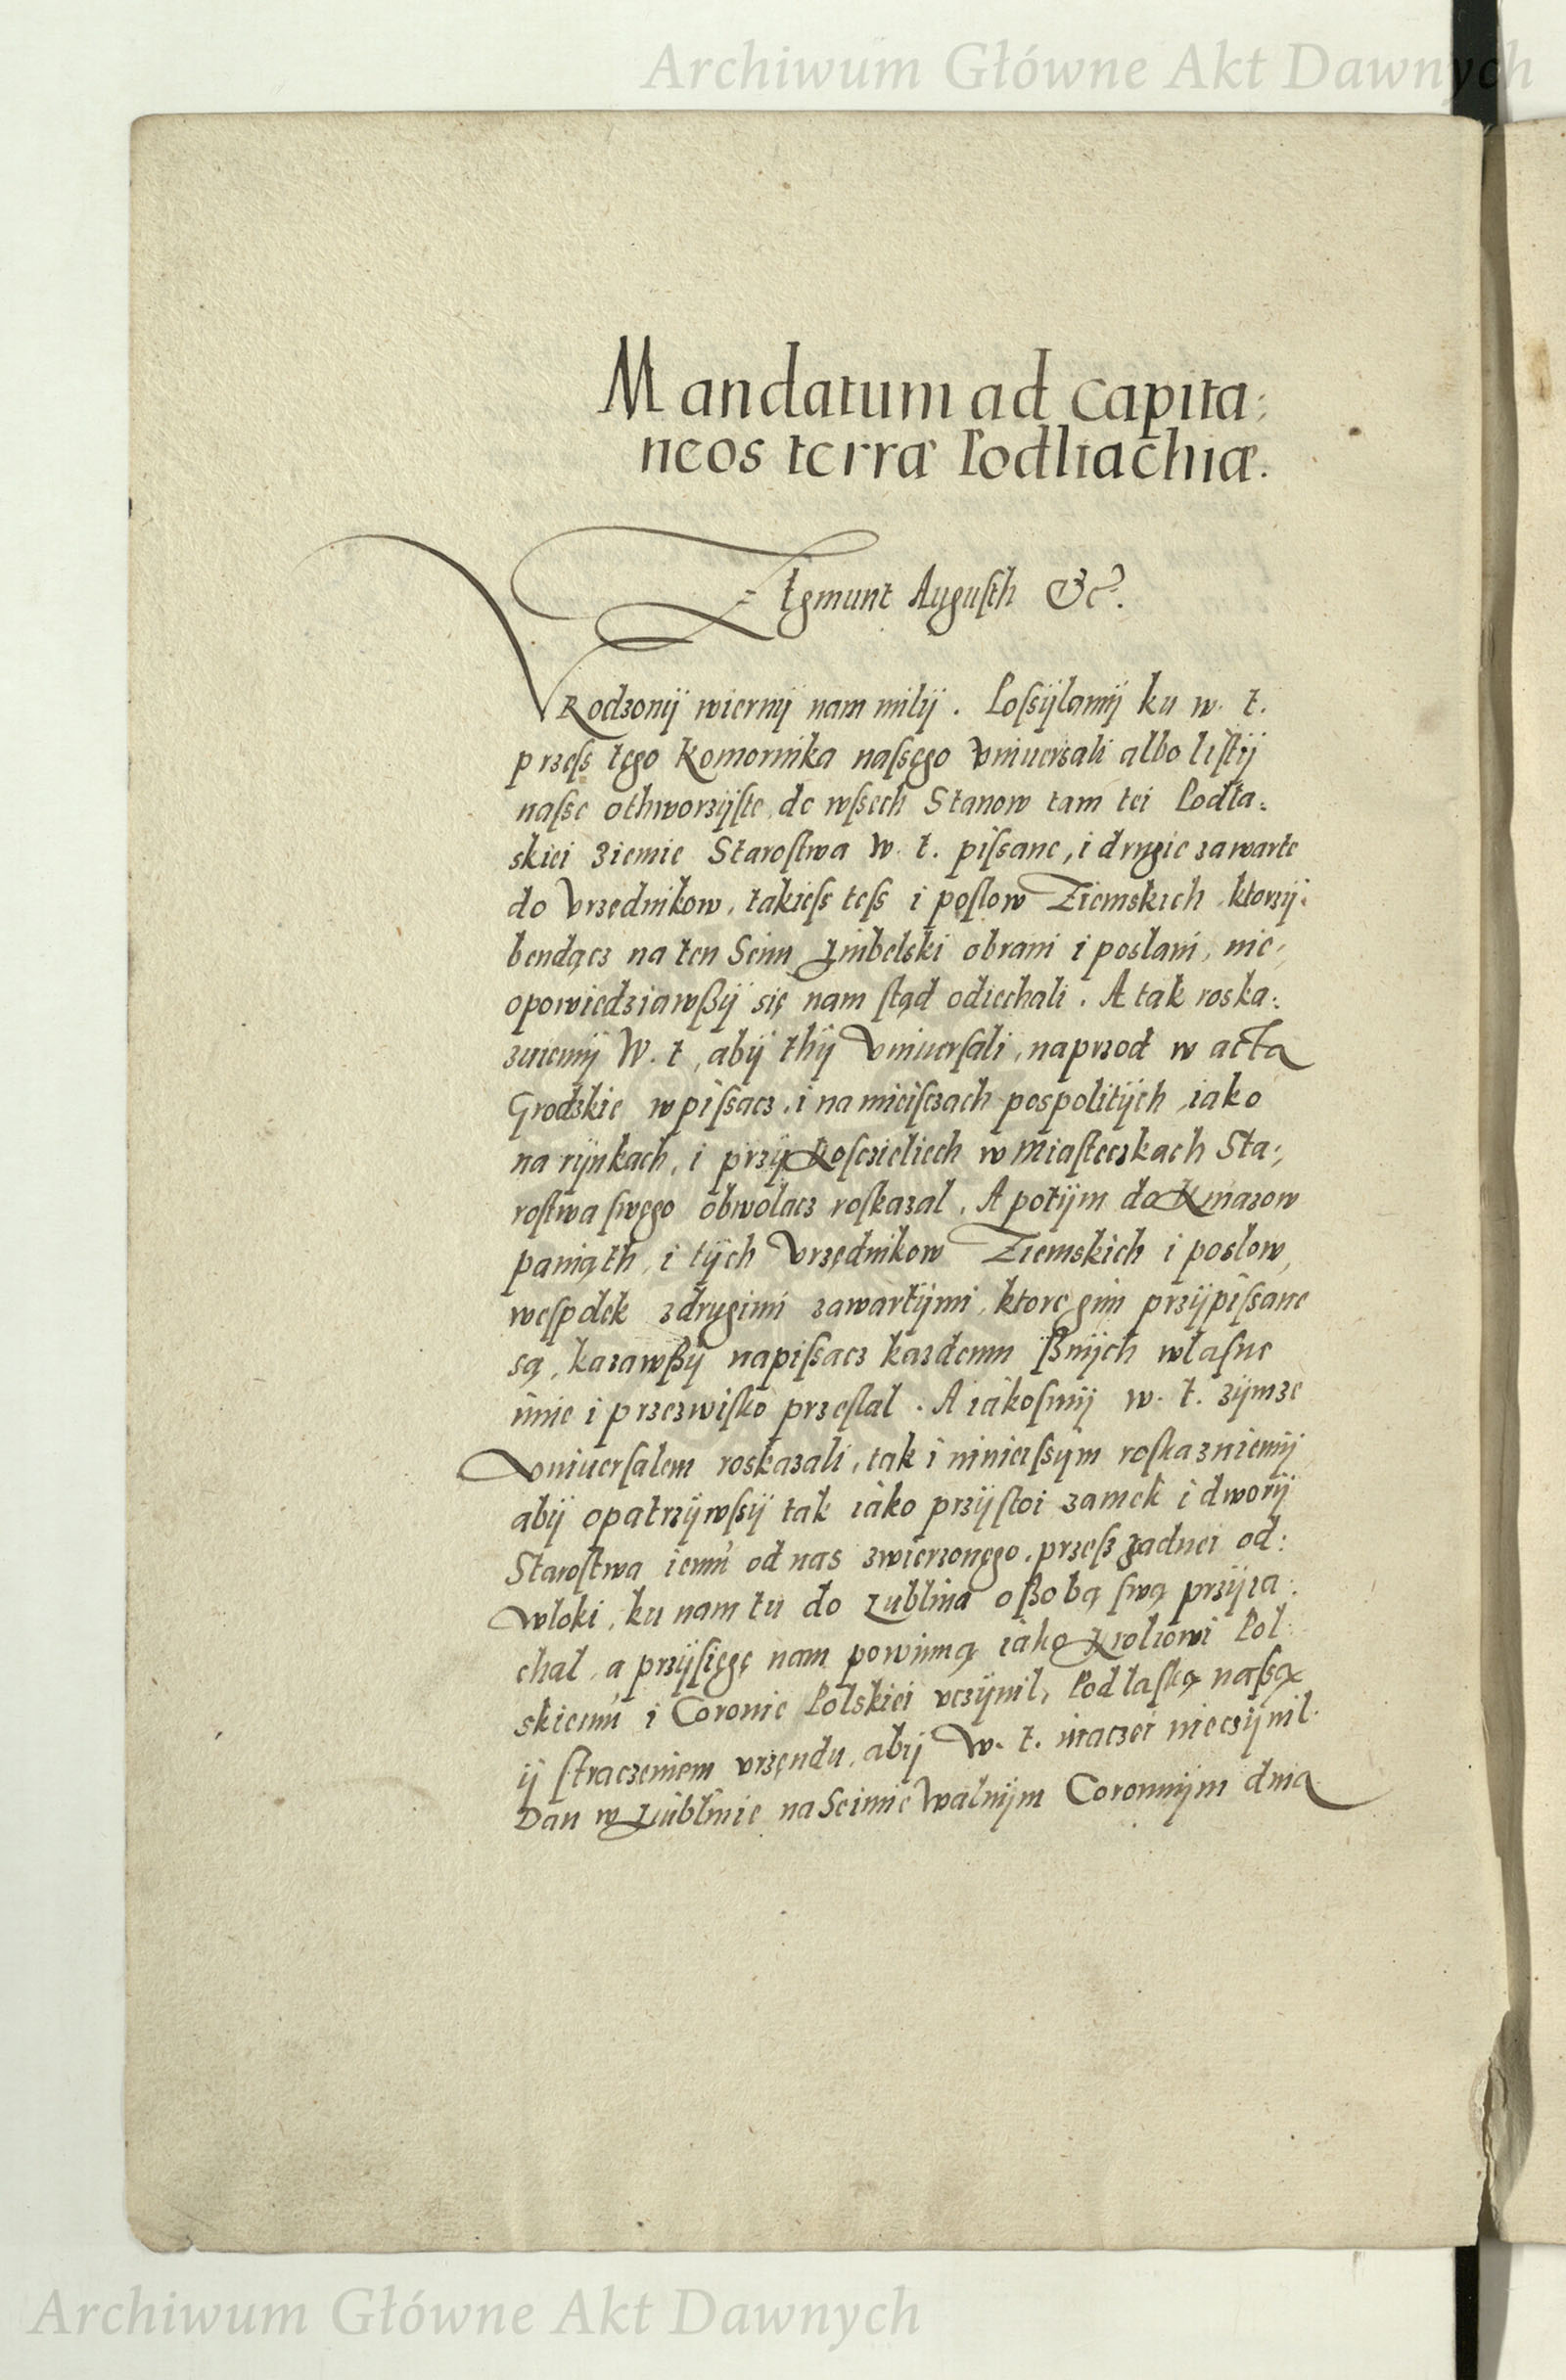 Archiwum Główne Akt Dawnych
Mandatum ad capita:
neos terræ Podliachiæ.
Zigmunt Augusth &c.
VRodzonÿ wiernÿ nam milÿ. Possÿlamÿ ku w. t.
przess tego Komornika nassego Vniuersali albo listÿ
nasse othworzÿste do wssech Stanow tam tei Podla:
skiei ziemie Starostwa w. t. pissane, i drugie zawarte
do Vrzednikow, takiess tess i poslow Ziemskich, ktorzÿ
bendącz na ten Seim Lubelski obrani i poslani, nie:
opowiedziawßÿ się nam stąd odiechali. A tak roska:
zuiemÿ W. t, abÿ thÿ Vniuersali, naprzod w acta
Grodzkie wpissacz, i na mieisczach pospolitÿch, iako
na rÿnkach, i przÿ Kosczieliech w Miasteczkach Sta:
rostwa swego obwolacz roskazal. A potÿm do Kniazow
paniąth, i tÿch Vrzędnikow Ziemskich i poslow,
wespolek z drugimi zawartÿmi, ktore gim przÿpissane
są, kazawßÿ napissacz kazdemu ßnÿch wlasne
imie i przezwisko przeslal. A iakosmÿ w. t. zÿmze
Vniuersalem roskazali, tak i ninieissÿm roskazuiemÿ
abÿ opatrzÿwsÿ tak iako przÿstoi zamek i dworÿ
Starostwa iemu od nas zwierzonego, przesz zadnei od:
wloki, ku nam tu do Lublina oßobą swą przÿia:
chal, a przÿsięgę nam powinną iako Kroliowi Pol:
skiemu i Coronie Polskiei vczÿnil, Pod laską naßą
ÿ straczeniem vrzędu, abÿ W. t. inaczei nieczÿnil.
Dan w Lublinie na Seimie Walnÿm Coronnÿm dnia
Archiwum Główne Akt Dawnych